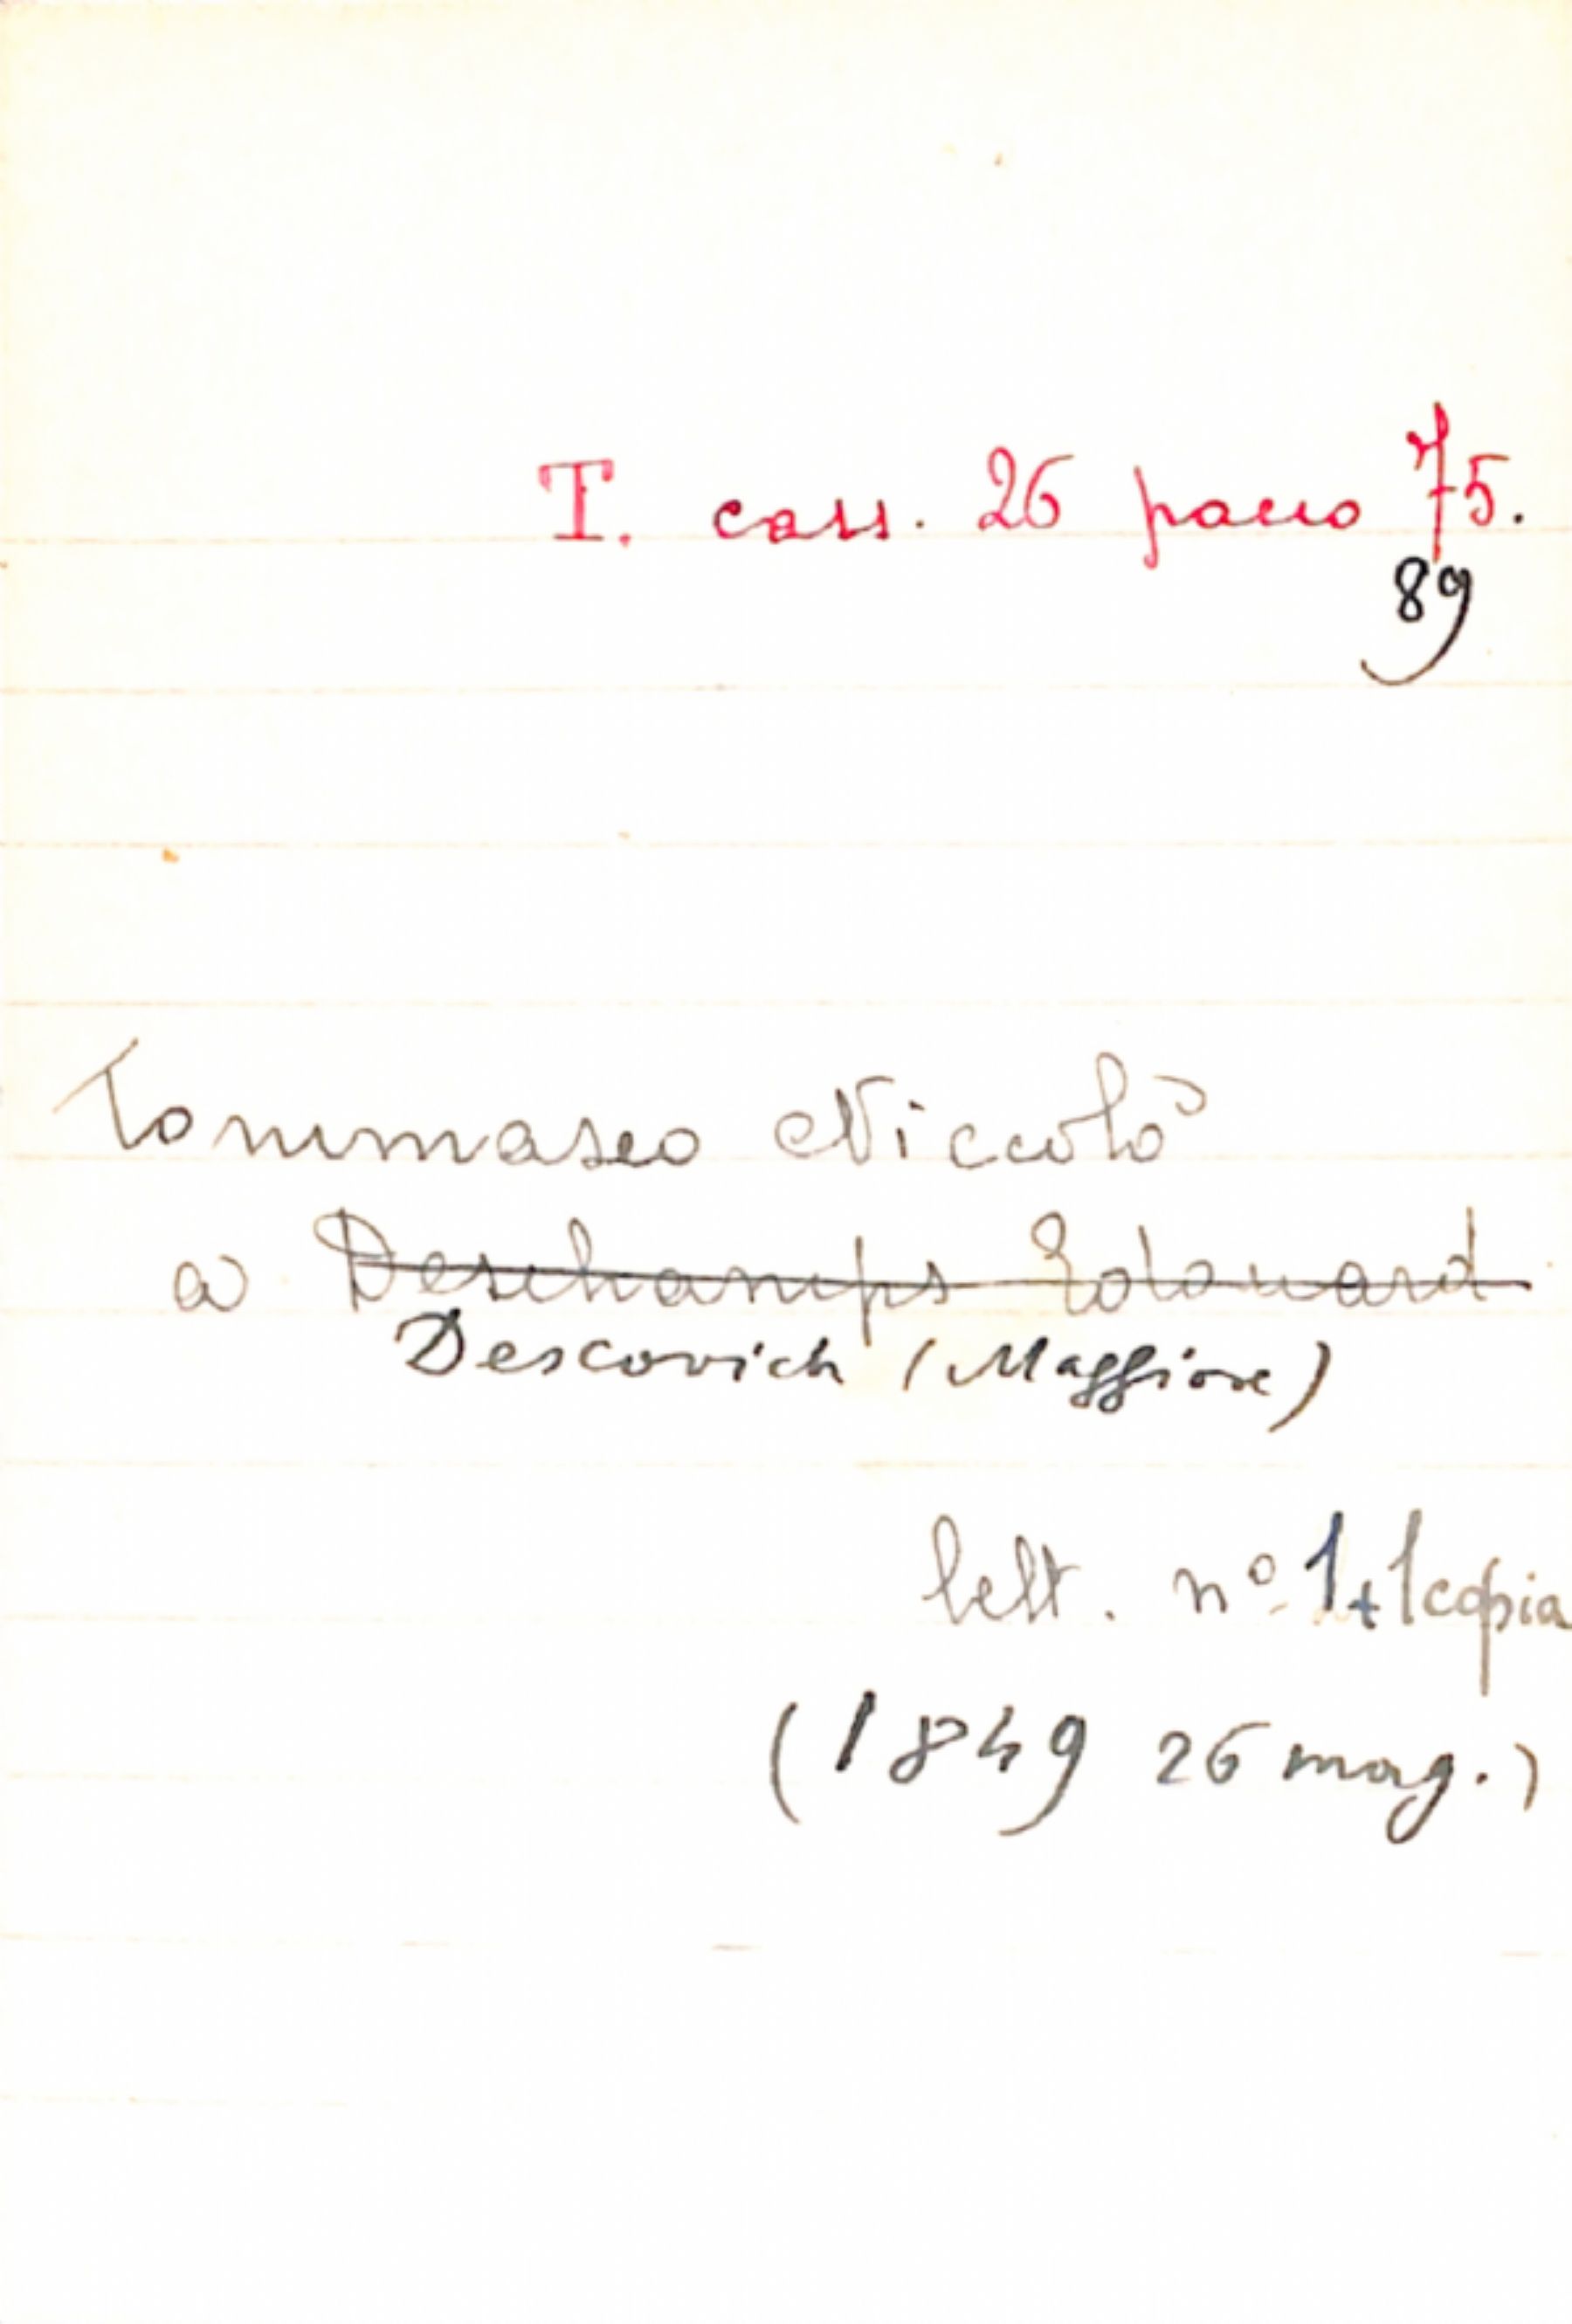 T. cass. 26 pacco 75.
89
Tommaseo Niccolò
a Deschamps Edouard
Descovich (Maggiore)
lett. nº 1+1copia
(1849 26 mag.)